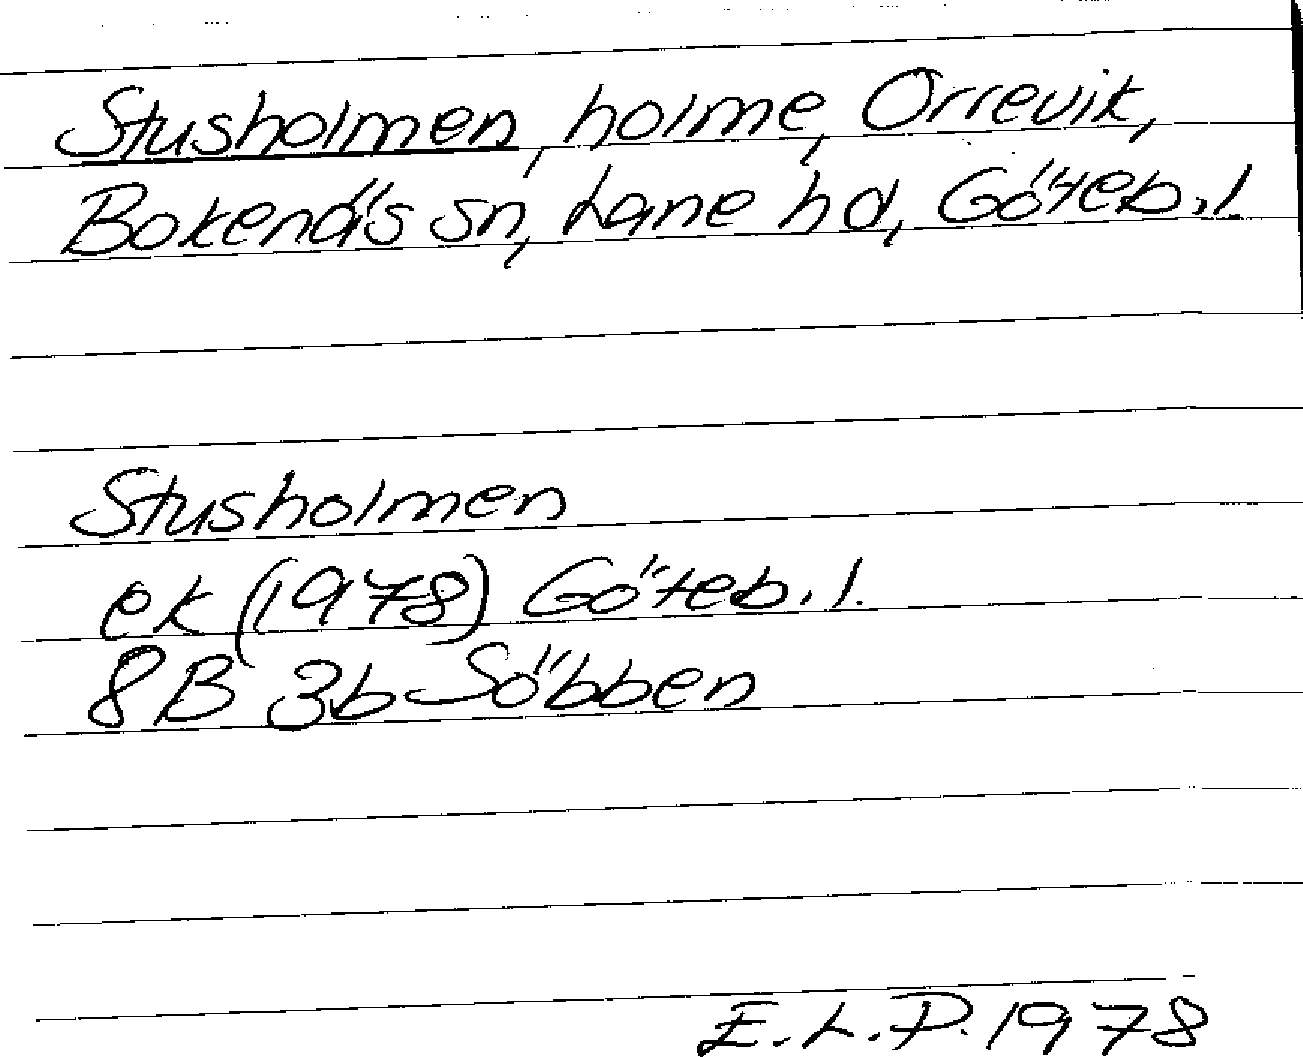 Stusholmen, holme, Orrevik,
Bokenäs sn, Lane hd, Göteb. l.
Stusholmen
ek (1978) Göteb. l.
8B 3b Söbben
E.L.P. 1978